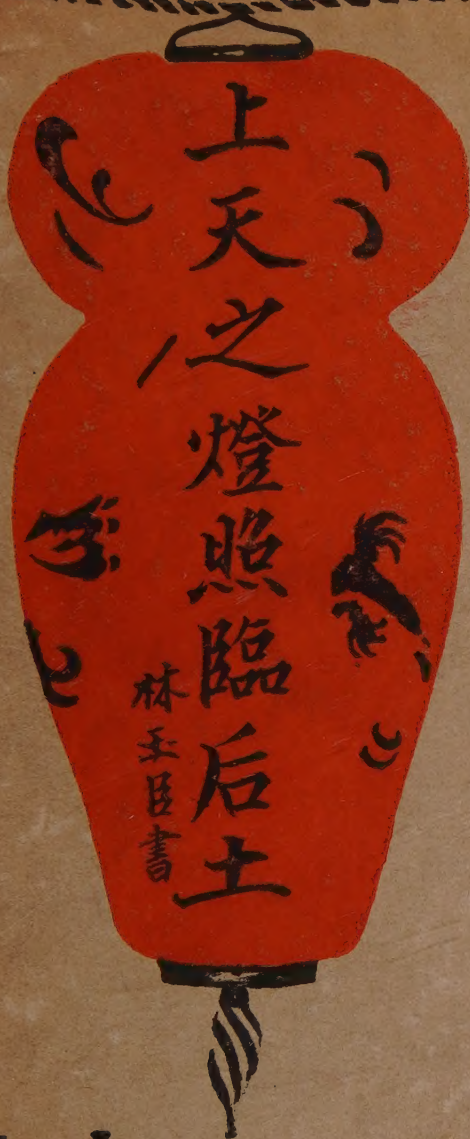 上天之燈照臨后土
林玉臣書